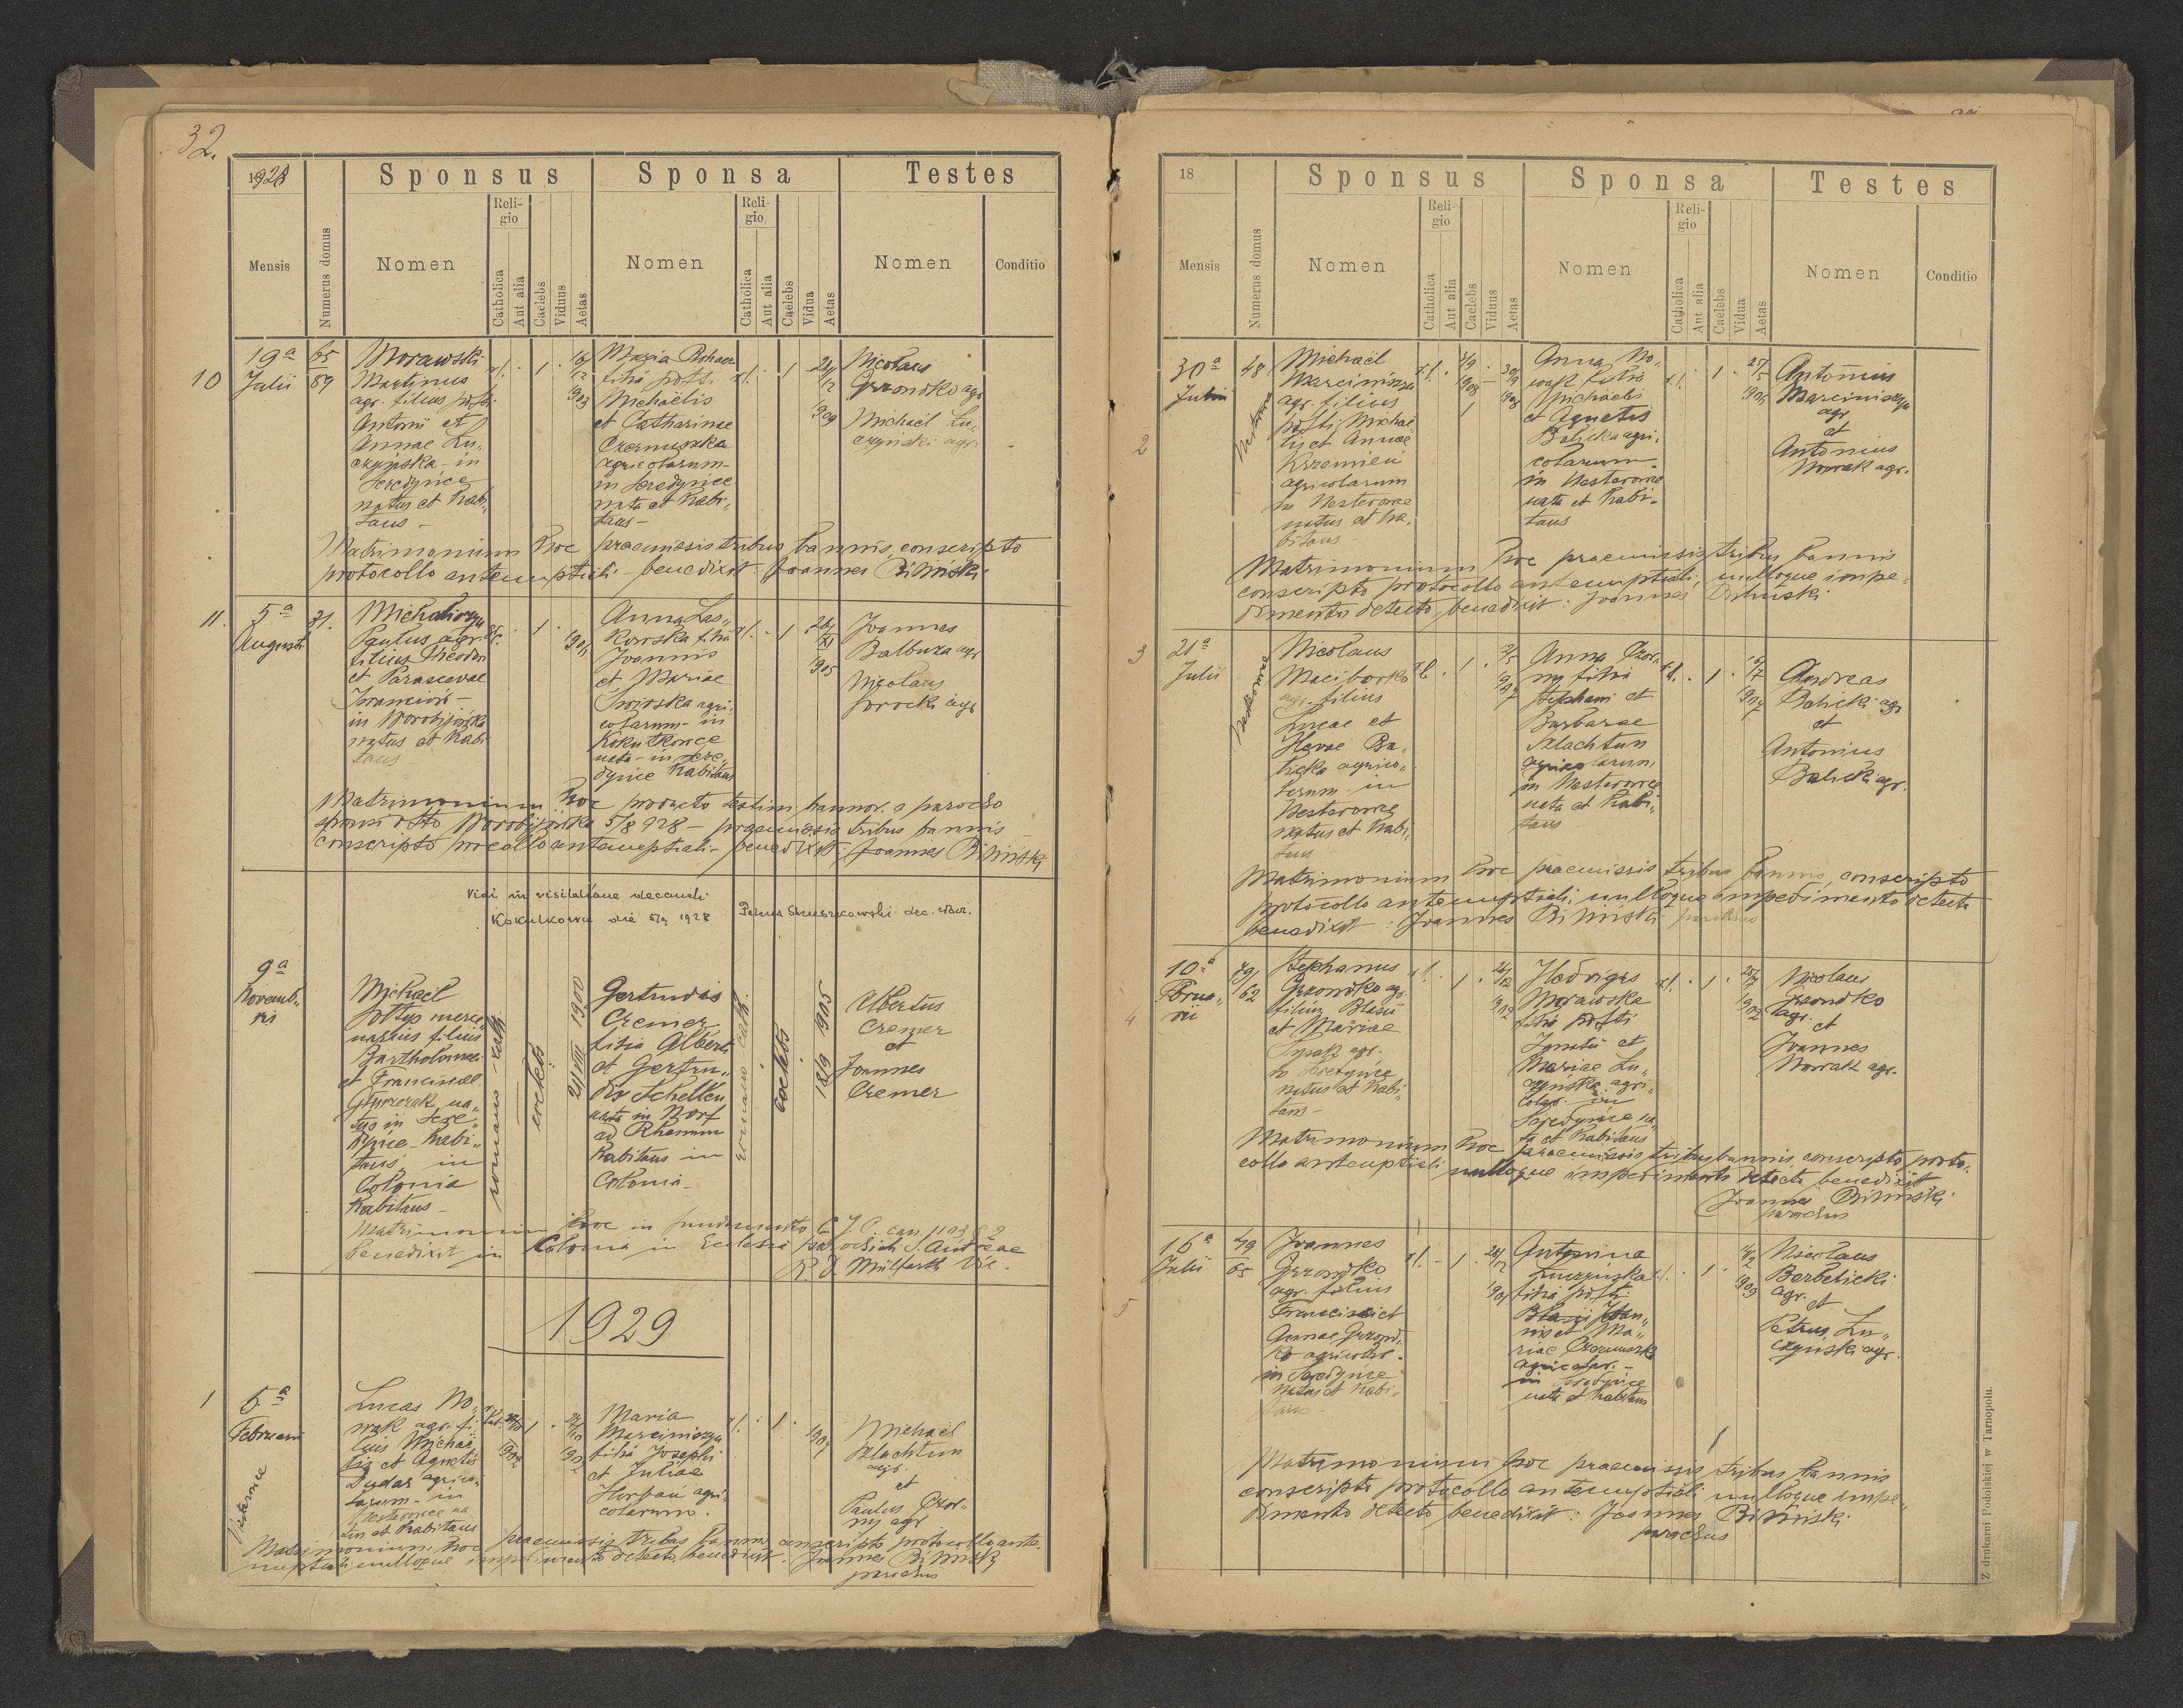 32.
1928
Sponsus
Sponsa
Testes
Mensis
Numerus domus
Nomen
Religio
Catholica
Aut alia
Caelebs
Viduus
Aetas
Nomen
Religio
Catholica
Aut alia
Caelebs
Vidua
Aetas
Nomen
Conditio
10
19a
Julii
65
89
Morawski
Martinus
agr. filius
Antonii et
Annae Lu„
czyńska in
Seredynce
natus et habi„
tans –
r.l.
1
16/12
903
Maria Rohacz
filia
Michaëlis
et Catharinae
Czernyszka
agricolarum
in Seredynce
nata et habi„
tans –
r.l.
1
909
Nicolaus
Grzondko agr
Michaël Lu„
czyński agr.
Matrimonium hoc praemissis tribus bannis, conscripto
protocollo antenuptiali – benedixit: Joannes Biliński
11.
5a
Augusti
Paulus agr.
filius Theodori
et Parascevae
natus et habi
tans
1
905
Anna Las„
kowska filia
Joannis
et Mariae
agri„
colarum in
Kokutkowce
nata – in Sere„
dynce habitans
r.l.
1
905
Joannes
Balbuza agr
Nicolaus
agr
Matrimonium hoc
5/8 928 – praemissis tribus bannis
conscripto antenuptiali – benedixit: Joannes Biliński
Vidi in visitatione decanali
die 5/9 1928
9a
Novemb„
ris
Michaël
Soltys merce„
narius filius
Bartholomaei
et Franciscae
na„
tus in Sere„
dynce habi„
tans in
Colonia
habitans –
romano-cath.
coelebs
1900
Gertrudis
Cremer
filia Alberti
et Gertru„
dis Schellen
nata in Worf
ad Rhenum
habitans in
Colonia –
romano-cath.
coelebs
18/9 1905
Albertus
Cremer
et
Joannes
Cremer
Matrimonium hoc in fundamento C. J. C. can. 1103 § 2
benedixit in Colonia in Ecclesia parochiali S. Andreae
R. D. Mülfarth Vic.
1929
1
5a
Februarii
Nesterowce
Lucas No„
wak agr. fi„
lius Michaë„
lis et Agnetis
Dudar agrico„
larum – in
Nesterowce na
tus et habitans
1
Maria
Marciniszyn
filia Josephi
et Juliae
agri„
colarum.
r.l.
1
Michaël
Szlachtun
agr.
et
Paulus Czor„
ny agr
Matrimonium hoc praemissis tribus bannis conscripto protocollo ante„
nuptiali nulloque impedimento detecto benedixit: Joannes Biliński
parochus
18
Sponsus
Sponsa
Testes
Mensis
Numerus domus
Nomen
Religio
Catholica
Aut alia
Caelebs
Viduus
Aetas
Nomen
Religio
Catholica
Aut alia
Caelebs
Vidua
Aetas
Nomen
Conditio
2
30a
48
Michaël
Marciniszyn
agr. filius
Michaë„
lis et Annae
Krzemień
agricolarum
in Nesterowce
natus et ha„
bitans
r.l.
1
Anna No„
wak filia
Michaëlis
et Agnetis
Balicka agri„
colarum
in Nesterowce
nata et habi„
tans
r.l.
1
Antonius
Marciniszyn
agr
et
Antonius
Nowak agr.
Matrimonium hoc praemissis tribus bannis
conscripto protocollo antenuptiali, nulloque impe„
dimento detecto, benedixit: Joannes Biliński
3
21a
Julii
Nesterowce
Nicolaus
Maciborko
agr. filius
Lucae et
Hevae Ba„
licka agrico„
larum in
Nesterowce
natus et habi„
tans
1
907
Anna Czor„
ny filia
Stephani et
Barbarae
Szlachtun
agricolarum
in Nesterowce
nata et habi„
tans
r.l.
1
Andreas
Balicki agr
et
Antonius
Balicki agr.
Matrimonium hoc praemissis tribus bannis, conscripto
protocollo antenuptiali, nulloque impedimento detecto
benedixit: Joannes Biliński parochus
4
10a
Februa„
rii
79/
62
Stephanus
Grzondko agr.
filius Blasii
et Mariae
agr.
in Seredynce
natus et habi„
tans –
r.l.
1
Hedvigis
Morawska
filia
Ignatii et
Mariae Lu„
czyńska agri„
colar. in
Seredynce na„
ta et habitans
r.l.
1
Nicolaus
Grzondko
agr.
et
Joannes
Nowak agr.
Matrimonium hoc praemissis tribus bannis conscripto proto„
collo antenuptiali nulloque impedimento detecto benedixit
Joannes Biliński
parochus
5
16a
Julii
49
65
Joannes
Grzondko
agr. filius
Francisci et
Annae Grzond„
ko agricolar.
in Seredynce
natus et habi„
tans –
r.l.
1
Antonina
Luczyńska
filia
Joan„
nis et Ma„
riae Czernyszka
agricolar. –
in Seredynce
nata et habitans
1
909
Nicolaus
Berbelicki
agr.
et
Petrus Lu„
czyński agr.
Matrimonium hoc praemissis tribus bannis
conscripto protocollo antenuptiali nulloque impe„
dimento detecto benedixit: Joannes Biliński
parochus
Z drukarni Podolskiej w Tarnopolu.